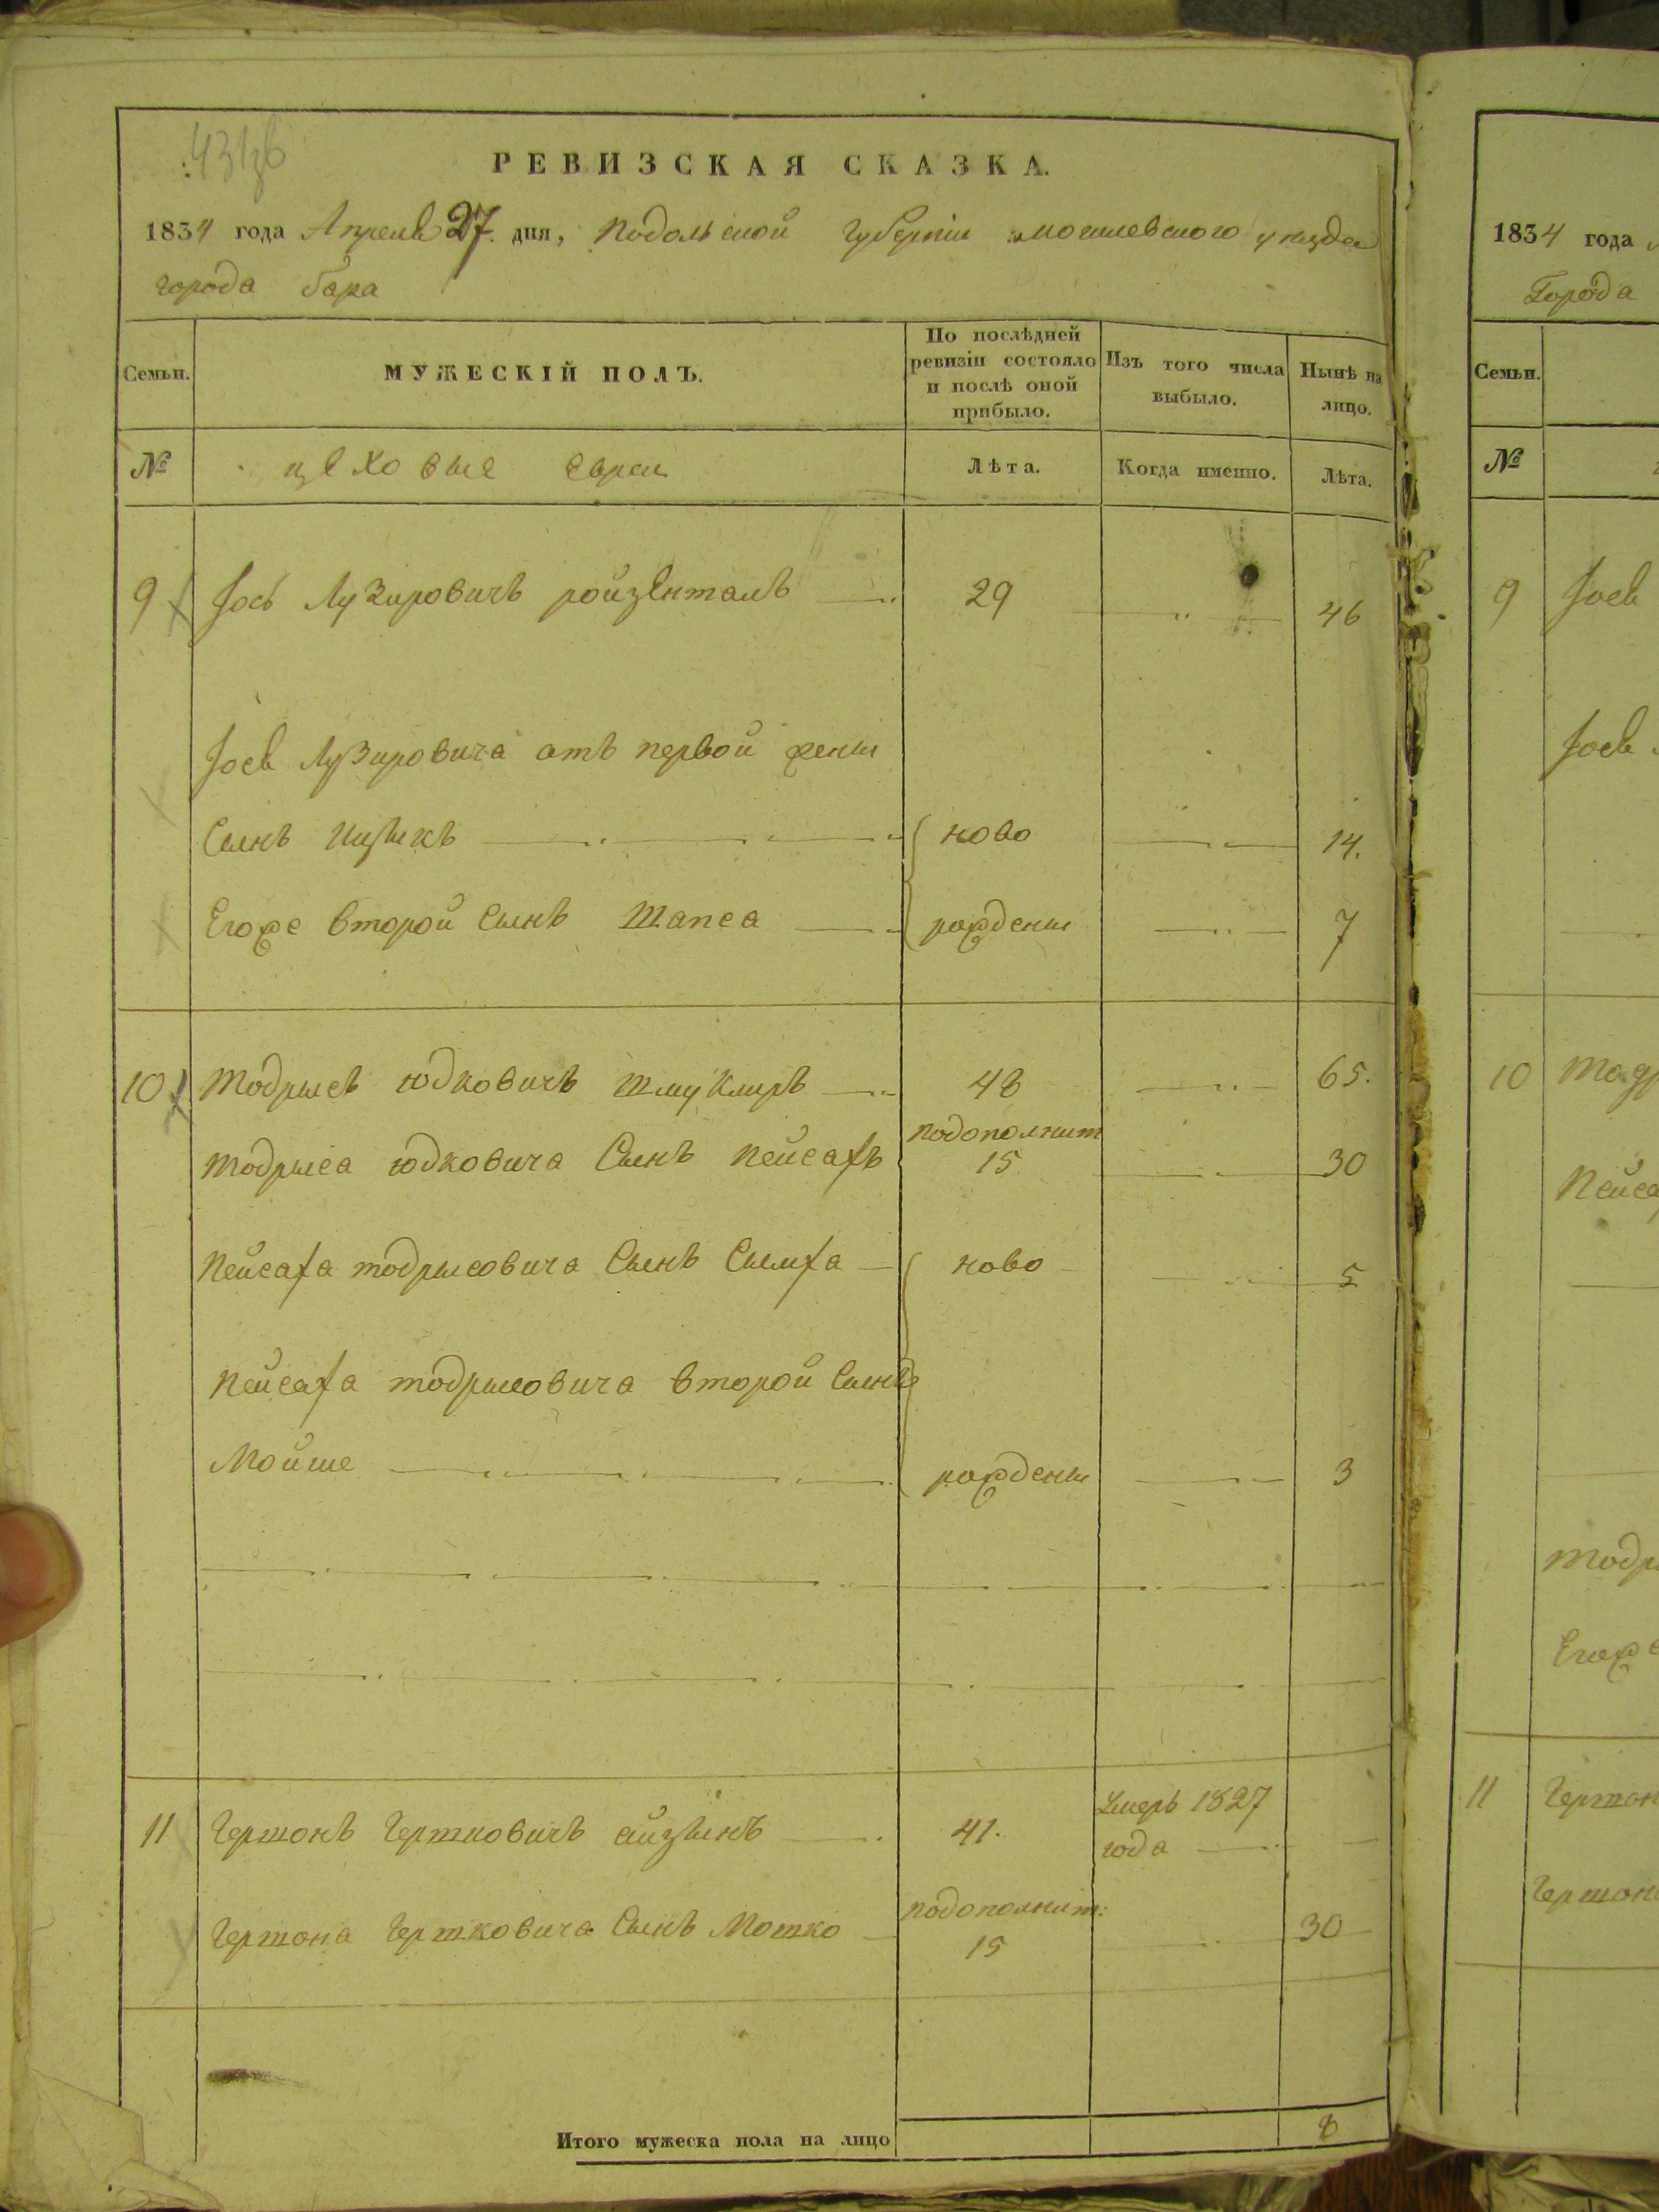 РЕВИЗСКАЯ СКАЗКА.
1834 года Апреля 27 дня, Подольской губернiи могилевского уезда
города бара
Семьи.
МУЖЕСКIЙ ПОЛЪ.
По послѣдней ревизiи состояло и послѣ оной прибыло.
Изъ того числа выбыло.
Нынѣ на лицо.
№ цеховые евреи
Лѣта. Когда именно. Лѣта.
9 Iось Лузировичъ ройзенталъ 29 46
Iося Лузировича отъ первой жены
Сынъ Ицыкъ ново 14.
Егоже второй Сынъ Шапса рожденны 7
10 Тодрысъ юдковичъ Шмуклиръ 48 65.
подополнит
Тодрыса юдковича Сынъ Пейсахъ 15 30
Пейсаха тодрысовича Сынъ Сымха ново 5
Пейсаха тодрысовича второй Сынъ
Мойше рожденны 3
11 Гершонъ Гершковичъ айзынъ 41. Умеръ 1827
года
подополнит:
Гершона Гершковича Сынъ Мошко 15 30
Итого мужеска пола на лицо 8
1834 года
Города
Семьи.
№
9 Iося
Iося
10
Пейса
Тодры
Егоже
11 Гершон
Гершон